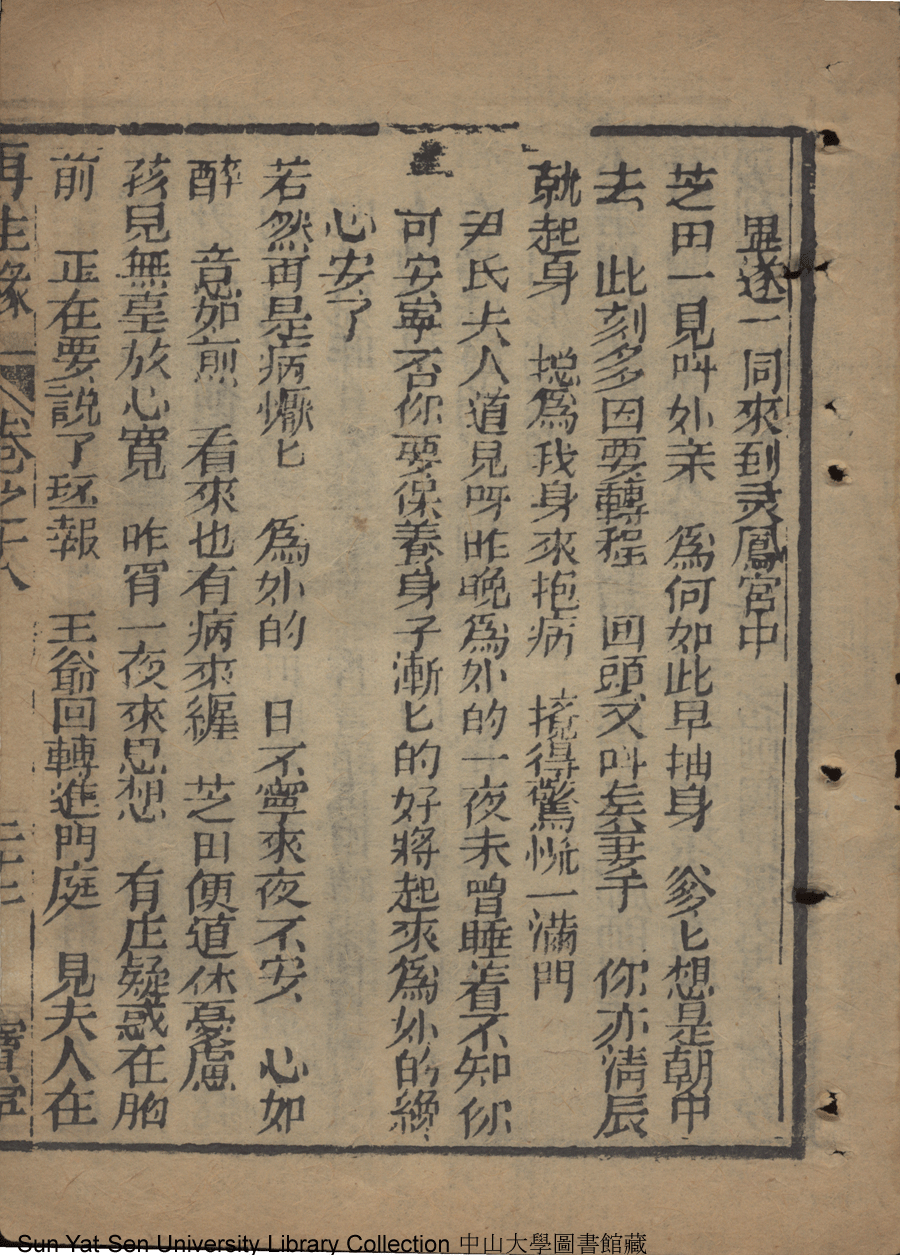 畢遂一同來到灵鳳宮中
芝田一見叫外亲　為何如此早抽身　爹匕想是朝中
去　此刻多因要轉程　回頭又叫妻手　你亦清辰
就起身　搃為我身來抱病　攪得驚慌一滿門
尹氏夫人道見呀昨晚為外的一夜未曾睡着不知你
可安寧否你要保養身子漸匕的好將起來為外的纔
心安了
若然再是病懨匕　為外的　日不寧來夜不安　心如
醉　意如煎　看來也有病來纏　芝田便道休憂慮
孩見無㙜放心寬　昨宵一夜來思想　有庄疑惑在胸
前　正在要說了环報　王爺回轉進門庭　見夫人在
再生緣　卷之十八　二十七　寶寧
Sun Yat Sen University Library Collection 中山大學圖書館藏